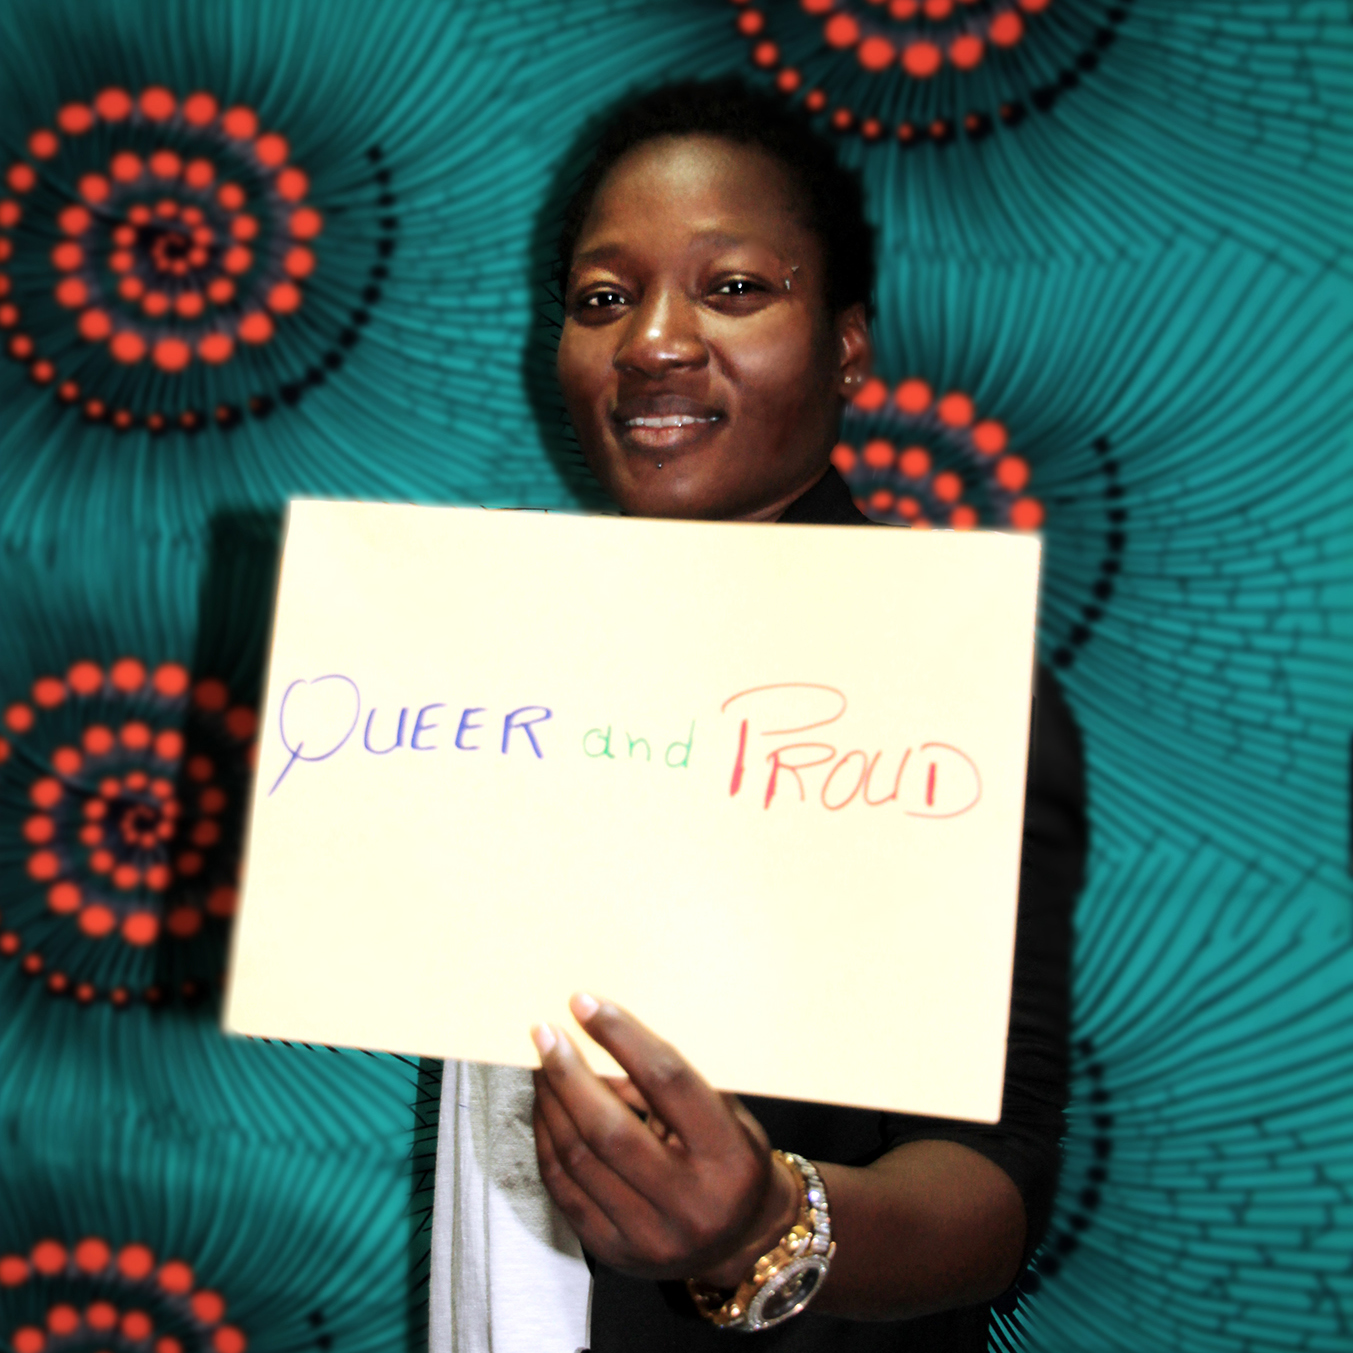 QUEER and PROUD